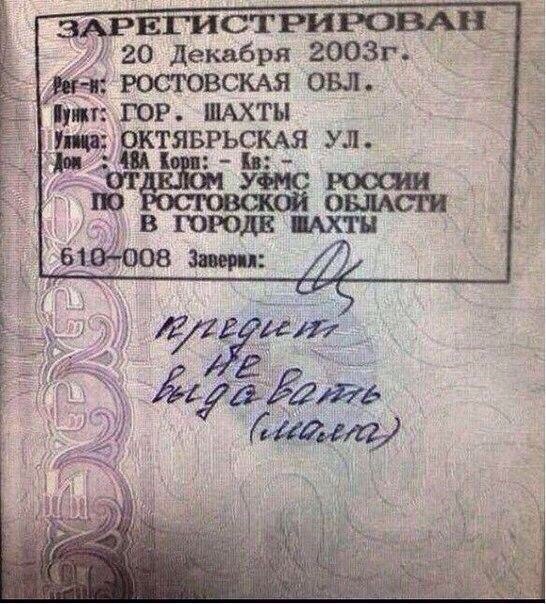 ЗАРЕГИСТРИРОВАН
20 Декабря 2003г.
Рег-н: РОСТОВСКАЯ ОБЛ.
Пункт: ГОР. ШАХТЫ
Улица: ОКТЯБРЬСКАЯ УЛ.
Дом : 48А Корп: - Кв: -
ОТДЕЛОМ УФМС РОССИИ
ПО РОСТОВСКОЙ ОБЛАСТИ
В ГОРОДЕ ШАХТЫ
610-008 Заверил:
кредит
не
выдавать
(мама)